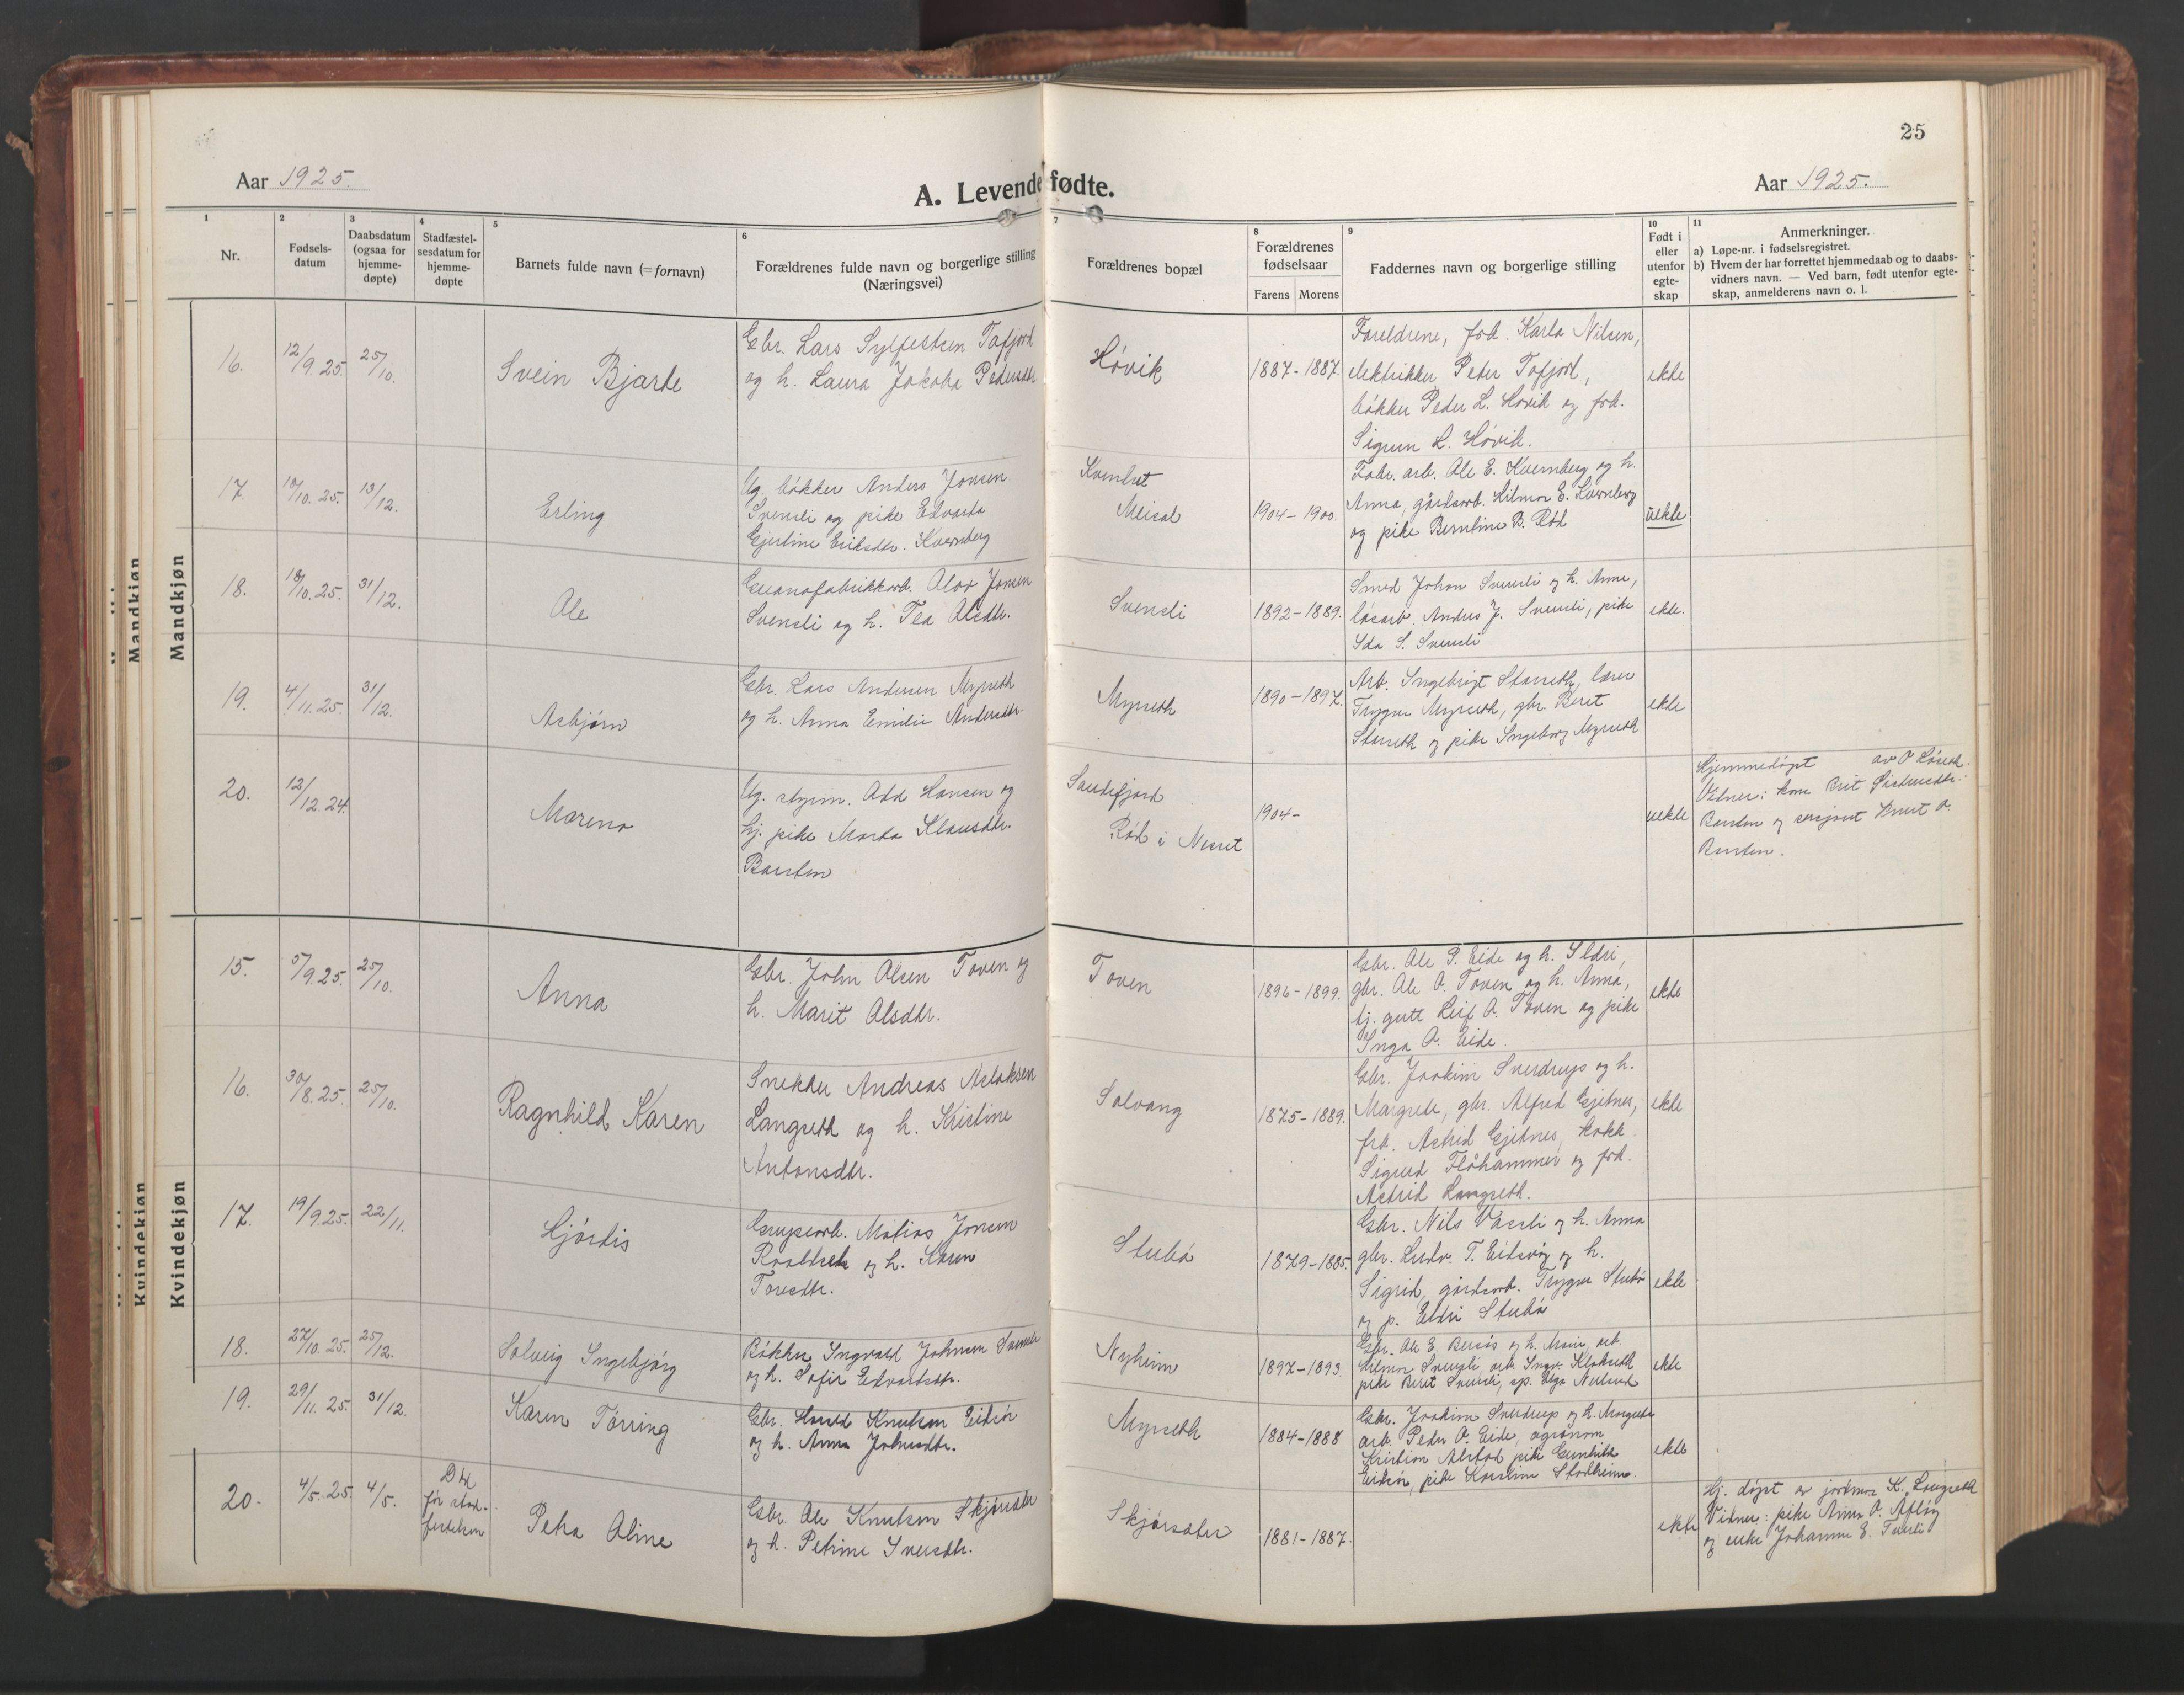 25
Aar 1925.
A. Levendefødte.
Aar 1925.
1
Nr.
2
Fødsels-
datum
3
Daabsdatum
(ogsaa for
hjemme-
døpte)
4
Stadfæstel-
sesdatum for
hjemme-
døpte
5
Barnets fulde navn (= fornavn)
6
Forældrenes fulde navn og borgerlige stilling
(Næringsvei)
7
Forældrenes bopæl
8
Forældrenes
fødselsaar
Farens Morens
9
Faddernes navn og borgerlige stilling
10
Født i
eller
utenfor
egte-
skap
11
Anmerkninger.
a) Løpe-nr. i fødselsregistret.
b) Hvem der har forrettet hjemmedaab og to daabs-
vidners navn. — Ved barn, født utenfor egte-
skap, anmelderens navn o. l.
Mandkjøn
16.
12/9.25.
25/10.
Svein Bjarte
Gbr. Lars Sylfestsen Tafjord
og h. Laura Jakoba Pedersdtr
Høvik
1887-1887.
Foreldrene, frk. Karla Nilsen,
elektrikker Peter Tafjord,
bøkker Peder L. Høvik og frk.
Sigrun L. Høvik.
ekte
17.
/10.25.
13/12.
Erling
Ug. bøkker Anders Jonsen
Svensli og pike Edvarda
Gjertine Eriksdtr. Kvernberg
Meisal
1904-1900.
Fabr. arb. Ole E. Kvernberg og h.
Anna, gårdsarb. Hilmar E. Kvernberg
og pike Berntine B. Rød
uekte
18.
18/10.25.
31/12.
Ole
Guanofabrikkarb. Olav Jonsen
Svensli og h. Tea Olsdtr.
Svensli
1892-1889.
Smed Johan Svensli og h. Anne,
løsarb. Anders J. Svensli, pike
Ida S. Svensli
ekte.
19.
4/11.25.
31/12.
Asbjørn
Gbr. Lars Andersen Myrseth
og h. Anna Emilie Andersdtr.
Myrseth
1890-1897.
Arb. Ingebrigt Storseth, lærer
Trygve Myrseth, gbr. Beret
Storseth og pike Ingeborg Myrseth
ekte
20.
12/12.24
Marena
Ug. styrm. Odd Hansen og
hj. pike Marta Klausdtr.
Barsten
Sandefjord
Rød i Nesset
1904-
uekte
Hjemmedøpt av
Vidner: kone
og sersjant Knut O.
Kvindekjøn
15.
5/9.25.
25/10.
Anna
Gbr. John Olsen Toven og
h. Marit Olsdtr.
Toven
1896-1899.
Gbr. Ole P. Eide og h. Ildri,
gbr. Ole O. Toven og h. Anna,
hj. gutt Leif O. Toven og pike
Inga O. Eide.
ekte
16.
30/8.25.
25/10.
Ragnhild Karen
Snekker Andreas Aslaksen
Langseth og h. Kristine
Antonsdtr.
Solvang
1875-1889.
Gbr. Joakim Sverdrup og h.
Margrete, gbr. Alfred Gjetnes,
frk. Astrid Gjetnes, kokk
Sigurd Flåhammer og frk.
Astrid Langseth.
ekte
17.
19/9.25.
22/11.
Hjørdis
Grupearb. Matias Jonsen
Roaldset og h. Karen
Toresdtr.
Stubø
1879-1885.
Gbr. Nils Vassli og h. Anna
gbr. Ludv. T. Eidsvåg og h.
Sigrid, gårdsarb. Trygve Stubø
og p. Eldri Stubø
ekte
18.
27/10.25.
25/12.
Solveig Ingebjørg
Bøkker Ingvald Johnsen Svensli
og h. Sofie Edvardsdtr.
Nyheim
1897-1893.
Gbr. Ole E. Bersås og h. Marie, arb.
Hilmar Svensli, arb. Ingv. Klokseth
pike Beret Svensli, sp. Olga Nerland
ekte
19.
29/11.25.
31/12.
Karen Tørring
Gbr. Harald Knutsen Eidsør
og h. Anna Johnsdtr.
Myrseth
1884-1888
Gbr. Joakim Sverdrup og h. Margrete
arb. Peder O. Eide, agronom
Kristian Alstad, pike Gunhild
Eidsør, pike
ekte
20.
4/5.25.
4/5.
Død
før stad-
festelsen
Petra Oline
Gbr. Ole Knutsen Skjørsæter
og h. Petrine Sversdtr.
Skjørsæter
1881-1887.
ekte
Hj. døpt av jordmor K. Langseth
Vidner: pike Anna O. Afløg
og enke Johanne E.